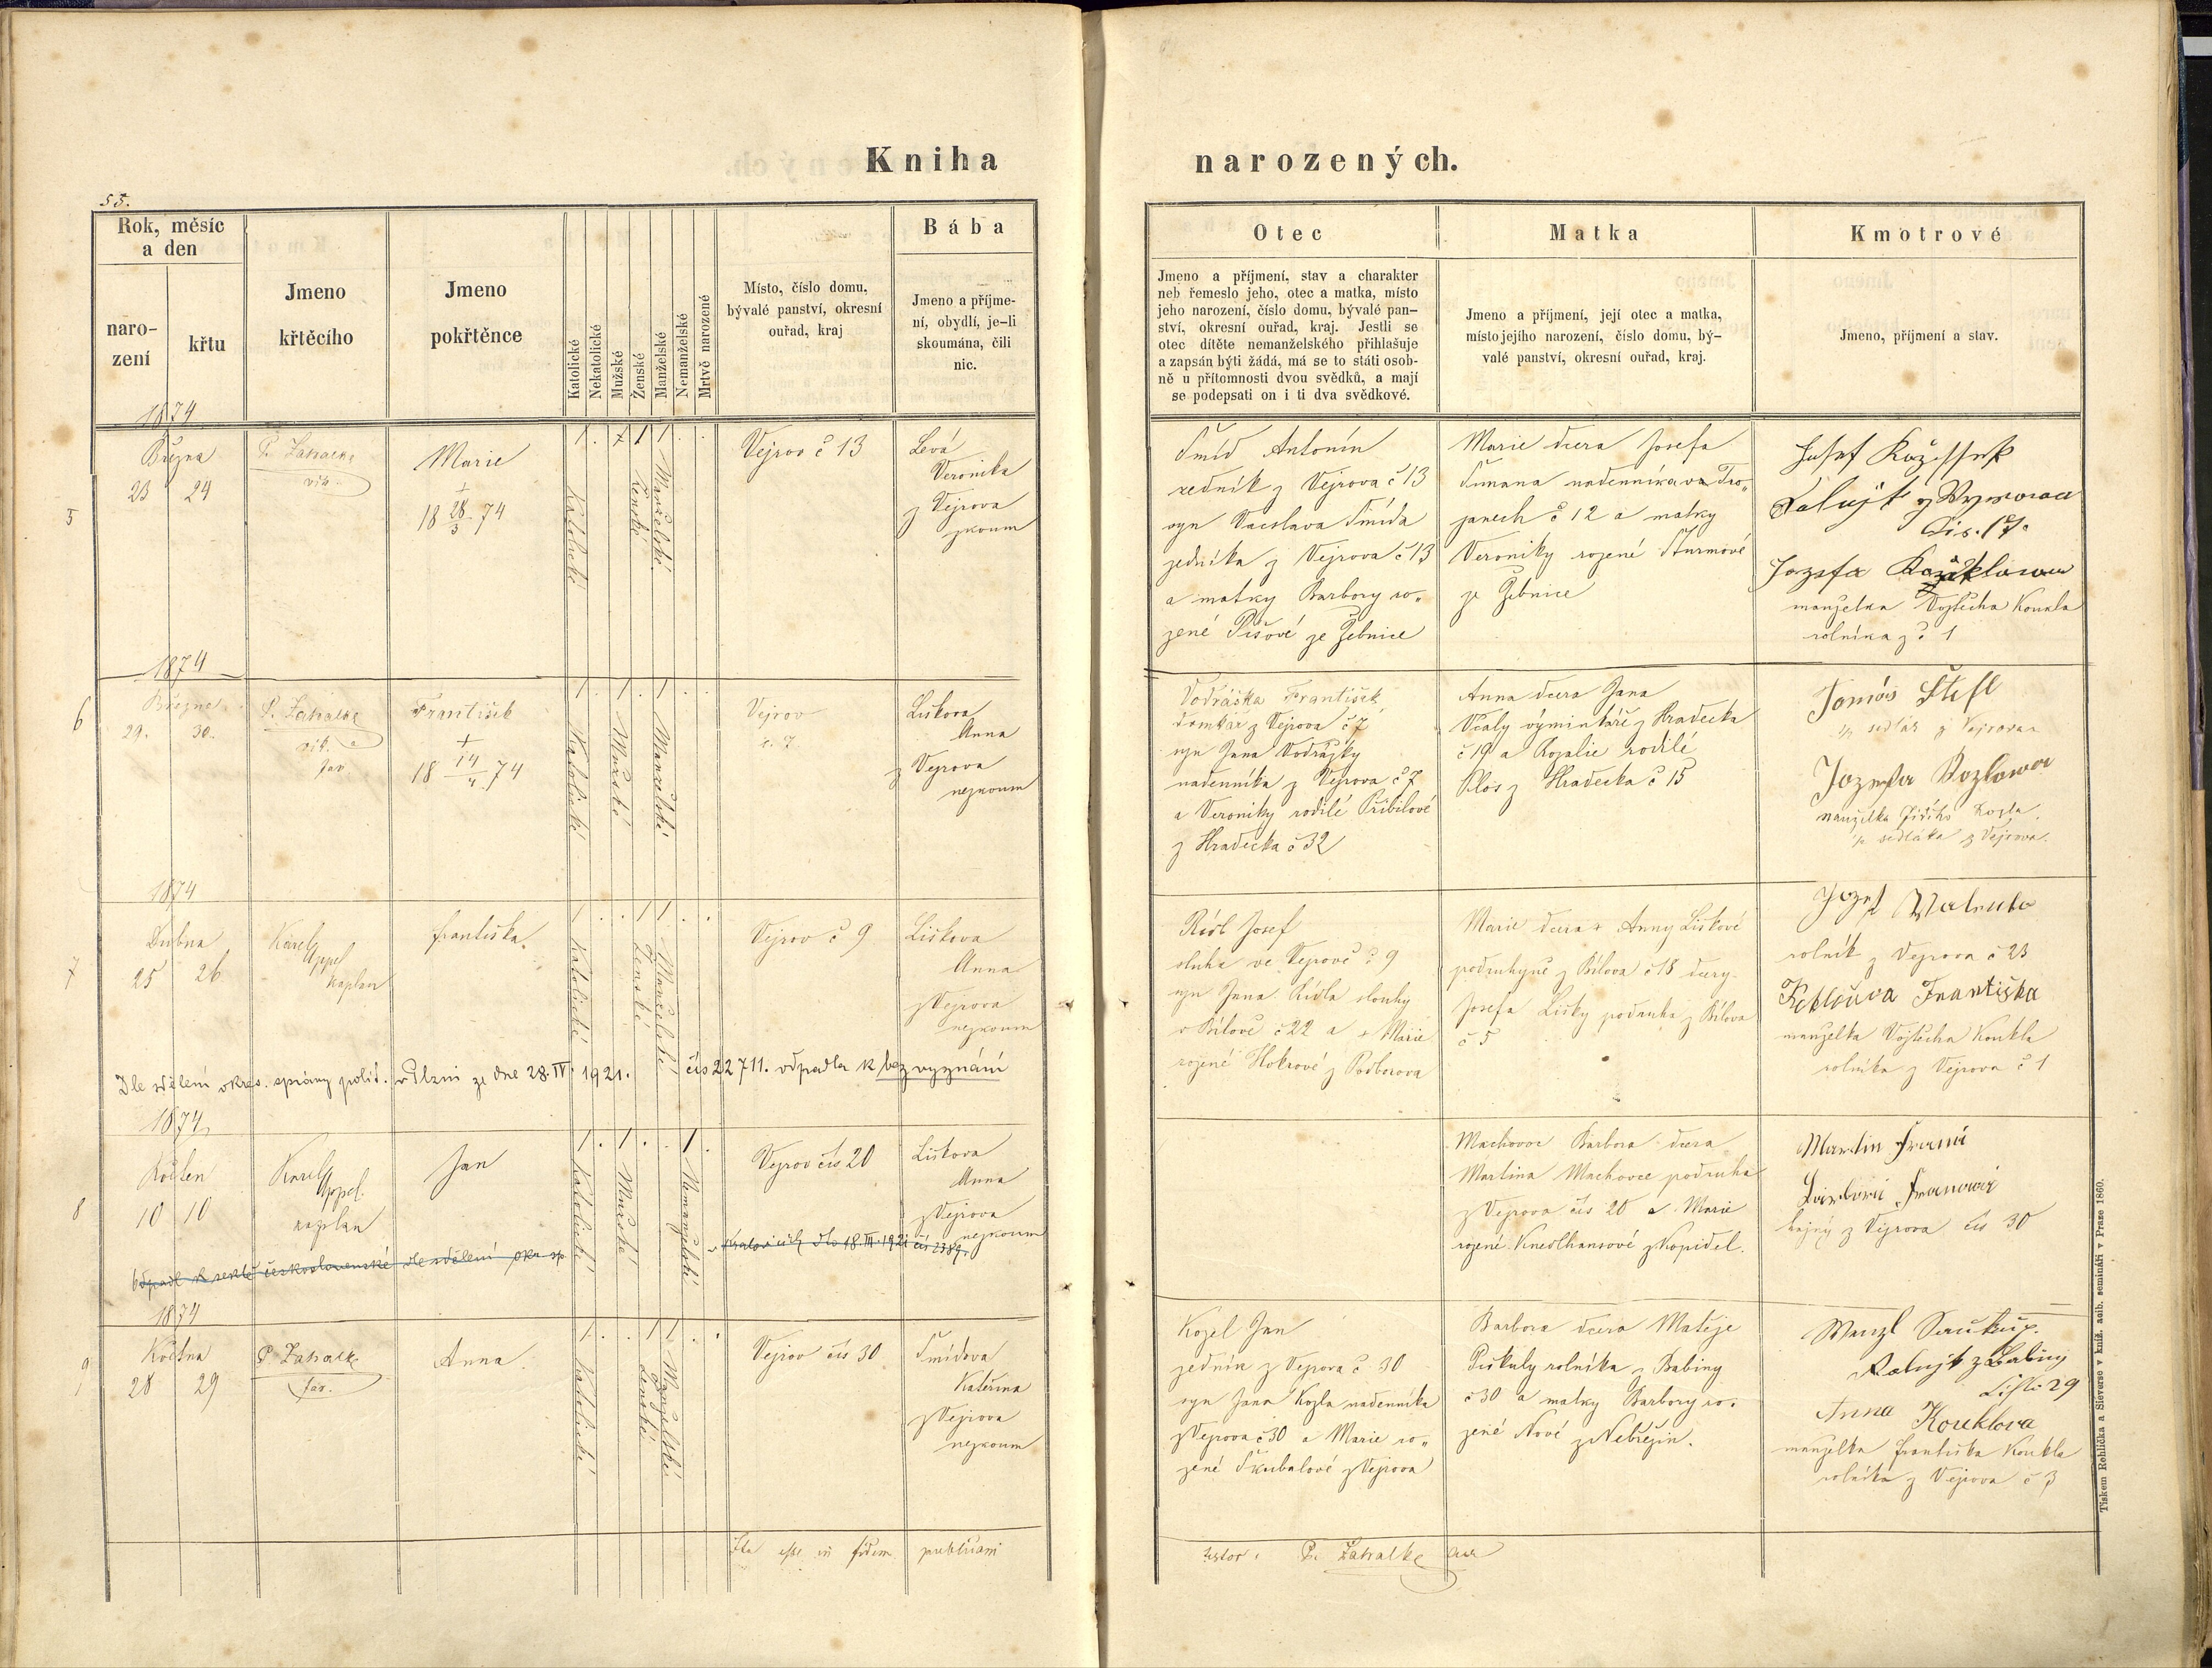 Kniha
narozených.
55.
Rok, měsíc
a den
naro-
zení
křtu
Jmeno
křtěcího
Jmeno
pokřtěnce
Katolické
Nekatolické
Mužské
Ženské
Manželské
Nemanželské
Mrtvě narozené
Místo, číslo domu,
bývalé panství, okresní
ouřad, kraj
Bába
Jmeno a příjme-
ní, obydlí, je-li
skoumána, čili
nic.
Otec
Jmeno a příjmení, stav a charakter
neb řemeslo jeho, otec a matka, místo
jeho narození, číslo domu, bývalé pan-
ství, okresní ouřad, kraj. Jestli se
otec dítěte nemanželského přihlašuje
a zapsán býti žádá, má se to státi osob-
ně u přítomnosti dvou svědků, a mají
se podepsati on i ti dva svědkové.
Matka
Jmeno a příjmení, její otec a matka,
místo jejího narození, číslo domu, bý-
valé panství, okresní ouřad, kraj.
Kmotrové
Jmeno, příjmení a stav.
1874
5
Března
23 24
P. Zahalka
Marie
+
18 28/3 74
Katolické
Ženské
Manželské
Vejrov č 13
Levá
Veronika
z Vejrova
zkoum
Šmíd Antonín
sedník z Vejrova č 13
syn Vacslava Šmída
sedníka z Vejrova č 13
a matky Barbory ro„
zené Píšové ze Žebnice
Marie dcera Josefa
nadenníka v Tro„
janech č 12 a matky
Veroniky rozené Šturmové
ze Žebnice
čis. 17.
Jozefa
manželka Vojtěcha Koukla
rolníka z č 1
1874
6
Března
29. 30.
P. Zahalka
František
+
18 14/4 74
Katolické
Mužské
Manželské
Vejrov
č. 7
Liškova
Anna
z Vejrova
nezkoum
Vodrážka František
domkář z Vejrova č 7
syn Jana Vodrážky
nadenníka z Vejrova č 7
a Veroniky rodilé Přibilové
z Hradecka č 32
Anna dcera Jana
Včaly výminkáře z Hradecka
č 19 a Rozalie rodilé
Klos z Hradecka č 15
Tomáš Štefl
½ sedlák z Vejrova
Jozefa Kozlowa
manželka Jiřího Kozla
½ sedláka z Vejrova.
1874
7
Dubna
25 26
Karel Appel
kaplan
Františka.
Katolické
Ženské
Manželské
Vejrov č 9
Liškova
Anna
z Vejrova
nezkoum
Josef
sluha ve Vejrově č 9
syn Jana Rídla slouhy
v Bílově č 22 a + Marie
rozené Hokrové z Podborova
Marie dcera + Anny Liškové
podruhyně z Bílova č 18 dcery
Josefa Lišky podruha z Bílova
č 5
rolník z Vejrova č 23
Františka
manželka Vojtěcha Koukla
rolníka z Vejrova č 1
Dle sdělení okres. správy polit. v Plzni ze dne 28.IV. 1921. čís 22711. odpadla k bez vyznání
1874
8
Květen
10 10
Karel Appel.
kaplan
Jan
Katolické
Mužské
Nemanželské
Vejrov čís 20
Liškova
Anna
z Vejrova
nezkoum
Odpadl k sektě československé dle sdělení okr. sp. v Kralovicích dto 18.III.1921 čís 2389.
Machovec Barbora dcera
Martina Machovce podruha
z Vejrova čís 20 a Marie
rozené Knedlhansové z Kopidel.
Martin
hajný z Vejrova čís 30
1874
9
Května
28 29
P. Zahalka
far.
Anna.
Katolické
Ženské
Manželské
Vejrov čís 30
Šmídova
Kateřina
z Vejrova
nezkoum
Kozel Jan
sedník z Vejrova č. 30
syn Jana Kozla nadenníka
z Vejrova č 30 a Marie ro„
zené Škubalové z Vejrova
Barbora dcera Matěje
Piškuly rolníka z Babiny
č 30 a matky Barbory ro„
zené Nové z Nebřežin.
Wenzl Soukup.
z Babiny
Čislo 29
Anna Kouklova
manželka Františka Koukla
rolníka z Vejrova č 3
Ita esse in fidem publicam
testor: P. Zahalka
Tiskem Rohlíčka a Sieverse v kníž. arib. semináři v Praze 1860.